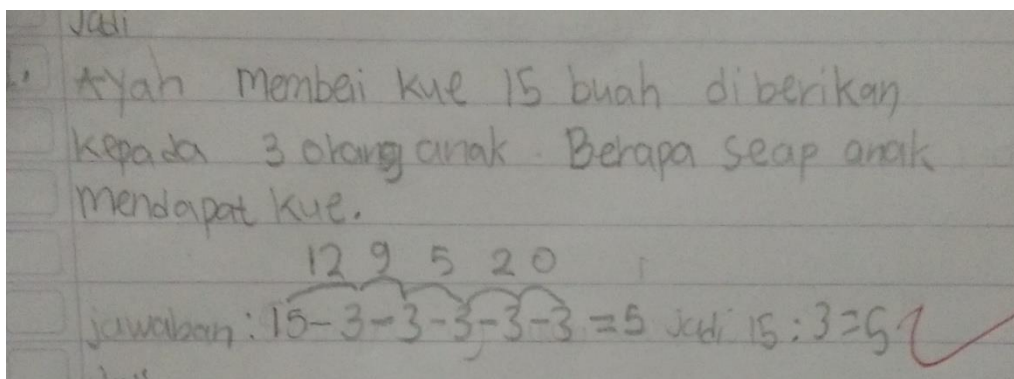 Jadi
Ayah membei kue 15 buah diberikan
kepada 3 orang anak. Berapa seap anak
mendapat kue.
12 9 5 2 0
jawaban: 15-3-3-3-3-3=5 jadi 15:3=5